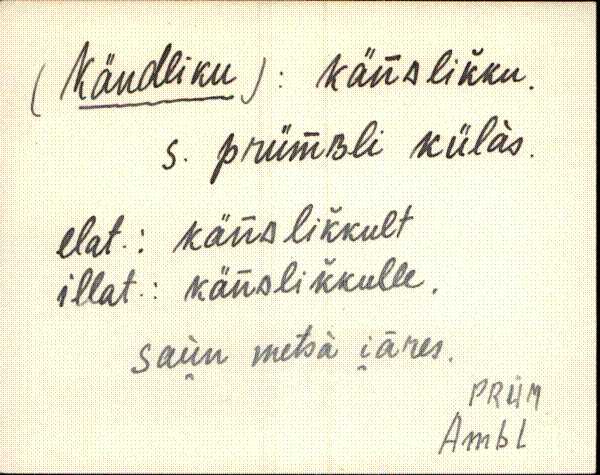 (Kändliku): kän̄ᴅlik̆ku.
s. prüm̄ʙli külàs.
elat.: kän̄ᴅlik̆kult
illat.: kän̄ᴅlik̆kulle.
sau̯ùn metsà i̯āres.
PRÜM
Ambl